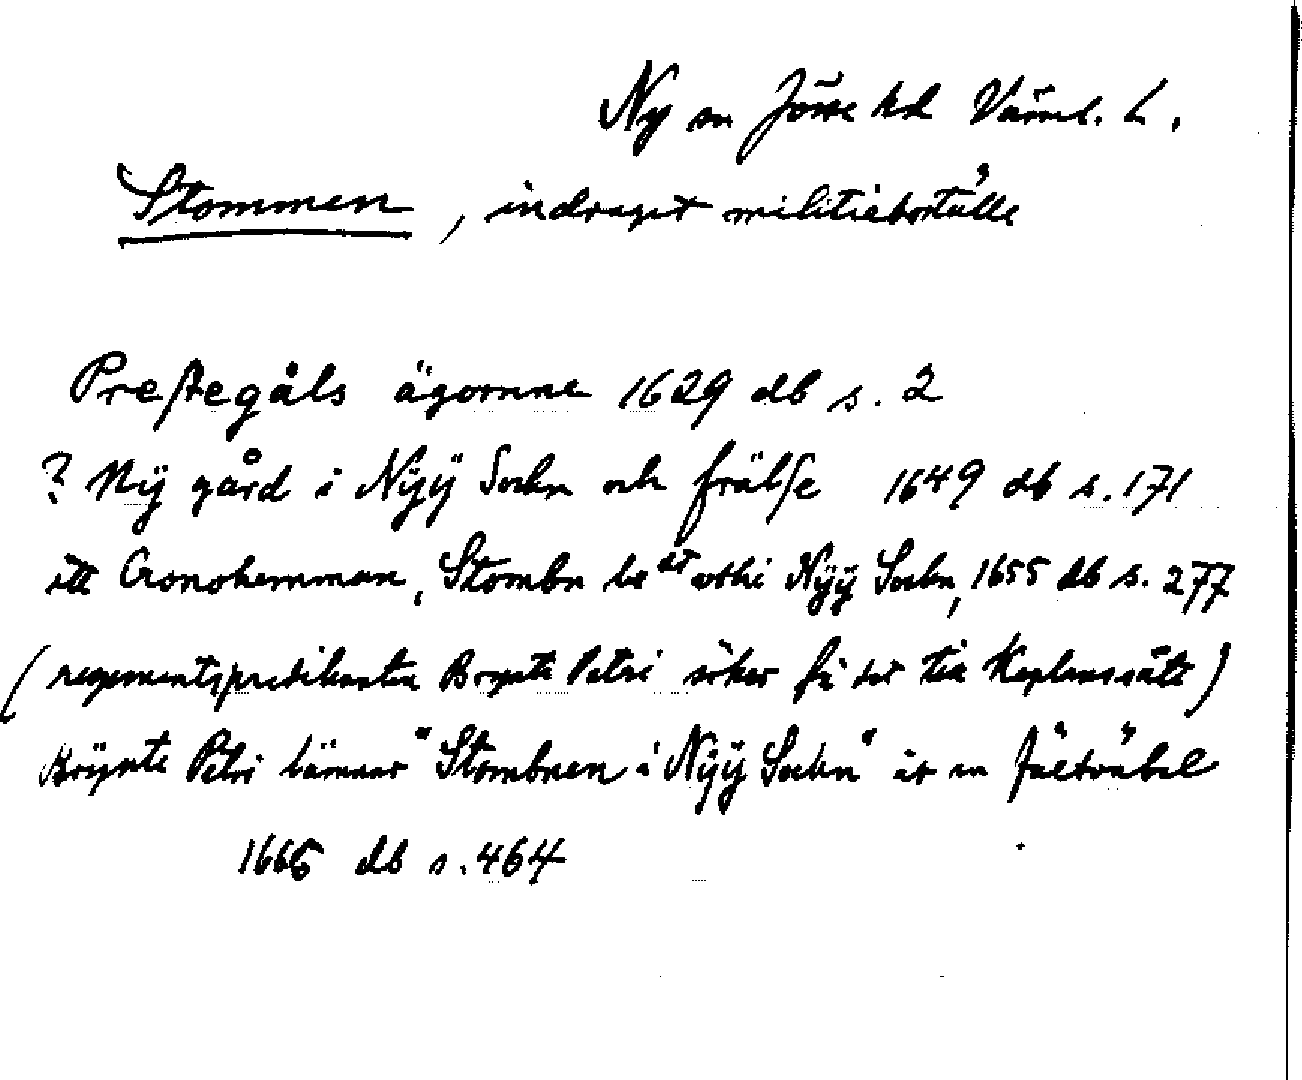 Ny sn Jösse hd Värml. L.
Stommen, indraget militieboställe
Prestegåls ägornne 1629 db s. 2
? Nÿ gård i Nÿÿ Sochn och frälse 1649 db s. 171
itt Cronohemman, Stombn be ... Nÿÿ Sochn, 1655 db s. 277
(regementspredikanten Brynte Petri söker få det till Kaplanssäte)
Brÿnte Petri lämnar "Stombnen i Nÿÿ Sochn" åt en
1666 db s. 464